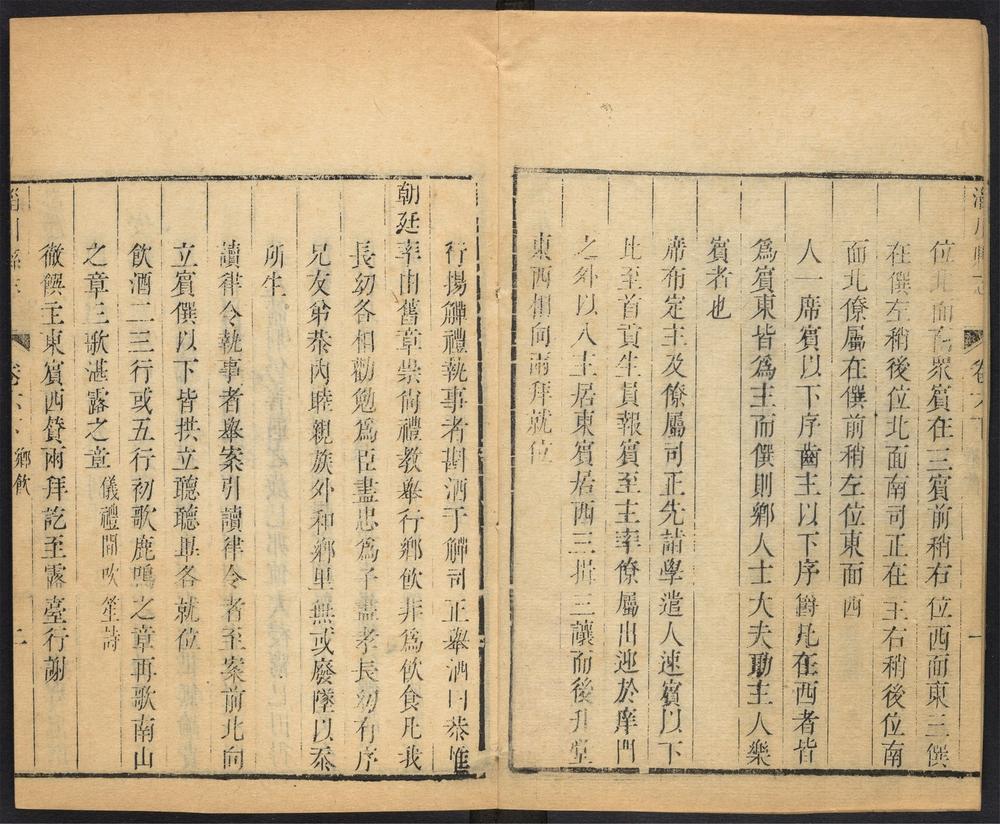 位北面南衆賓在三賓前稍右位西面東三僎
在僎左稍後位北面南司正在主右稍後位南
面北僚屬在僎前稍左位東面西
人一席賓以下序齒主以下序爵凡在西者皆
爲賓東皆爲主而僎則鄉人士大夫助主人樂
賓者也
席布定主及僚屬司正先詣學遣人速賓以下
比至首貢生員報賓至主率僚屬出迎於庠門
之外以入主居東賓居西三揖三讓而後升堂
東西相向兩拜就位
行揚觶禮執事者斟酒于觶司正舉酒曰恭惟
朝廷率由舊章崇尚禮教舉行鄉飲非爲飲食凡我
長幼各相勸勉爲臣盡忠爲子盡孝長幼有序
兄友弟恭內睦親族外和鄉里無或廢墜以忝
所生
讀律令執事者舉案引讀律令者至案前北向
立賓僎以下皆拱立聽聽畢各就位
飲酒二三行或五行初歌鹿鳴之章再歌南山
之章三歌湛露之章儀禮間吹笙詩
徹饌主東賓西贊兩拜訖至露臺行謝
卷六 鄉飲 二